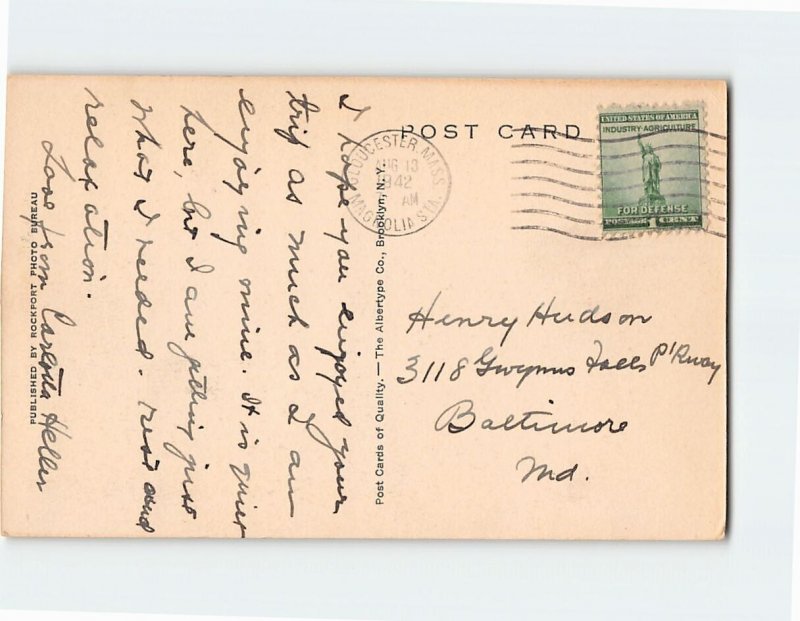 I hope you enjoyed your
trip as much as I am
enjoying mine. It is quiet
here, but I am getting just
what I needed. rest and
relaxation.
Love from Carlotta Heller
PUBLISHED BY ROCKPORT PHOTO BUREAU
Post Cards of Quality. — The Albertype Co., Brooklyn, N.Y.
POST CARD
GLOUCESTER, MASS.
AUG 13
1942
AM
MAGNOLIA STA.
UNITED STATES OF AMERICA
INDUSTRY·AGRICULTURE
FOR DEFENSE
POSTAGE 1 CENT
Henry Hudson
3118 Gwynns Falls P'Kway
Baltimore
Md.